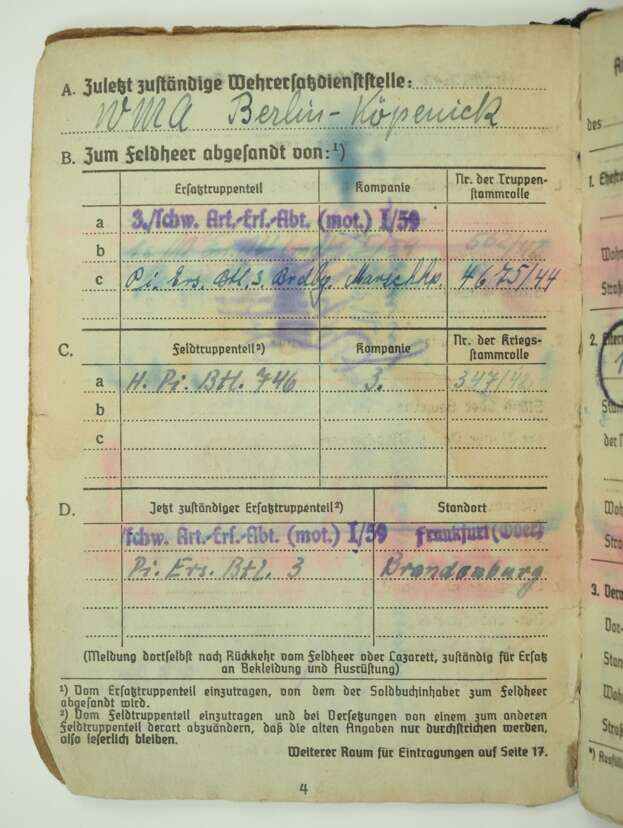 A. Zuletzt zuständige Wehrersatzdienststelle:
WMA Berlin-Köpenick
B. Zum Feldheer abgesandt von:¹)
Ersatztruppenteil Kompanie Nr. der Truppen-
stammrolle
a 3./schw. Art.-Ers.-Abt. (mot.) I/59
b
c Pi. Ers. Btl. 3 Brdbg. Marschkp. 4675/44
C. Feldtruppenteil²) Kompanie Nr. der Kriegs-
stammrolle
a H. Pi. Btl. 746 3. 347/42
b
c
D. Jetzt zuständiger Ersatztruppenteil²) Standort
/schw. Art.-Ers.-Abt. (mot.) I/59 Frankfurt (Oder)
Pi. Ers. Btl. 3 Brandenburg
(Meldung dortselbst nach Rückkehr vom Feldheer oder Lazarett, zuständig für Ersatz
an Bekleidung und Ausrüstung)
¹) Vom Ersatztruppenteil einzutragen, von dem der Soldbuchinhaber zum Feldheer
abgesandt wird.
²) Vom Feldtruppenteil einzutragen und bei Versetzungen von einem zum anderen
Feldtruppenteil derart abzuändern, daß die alten Angaben nur durchstrichen werden,
also leserlich bleiben.
Weiterer Raum für Eintragungen auf Seite 17.
4
des
1.
2.
3.